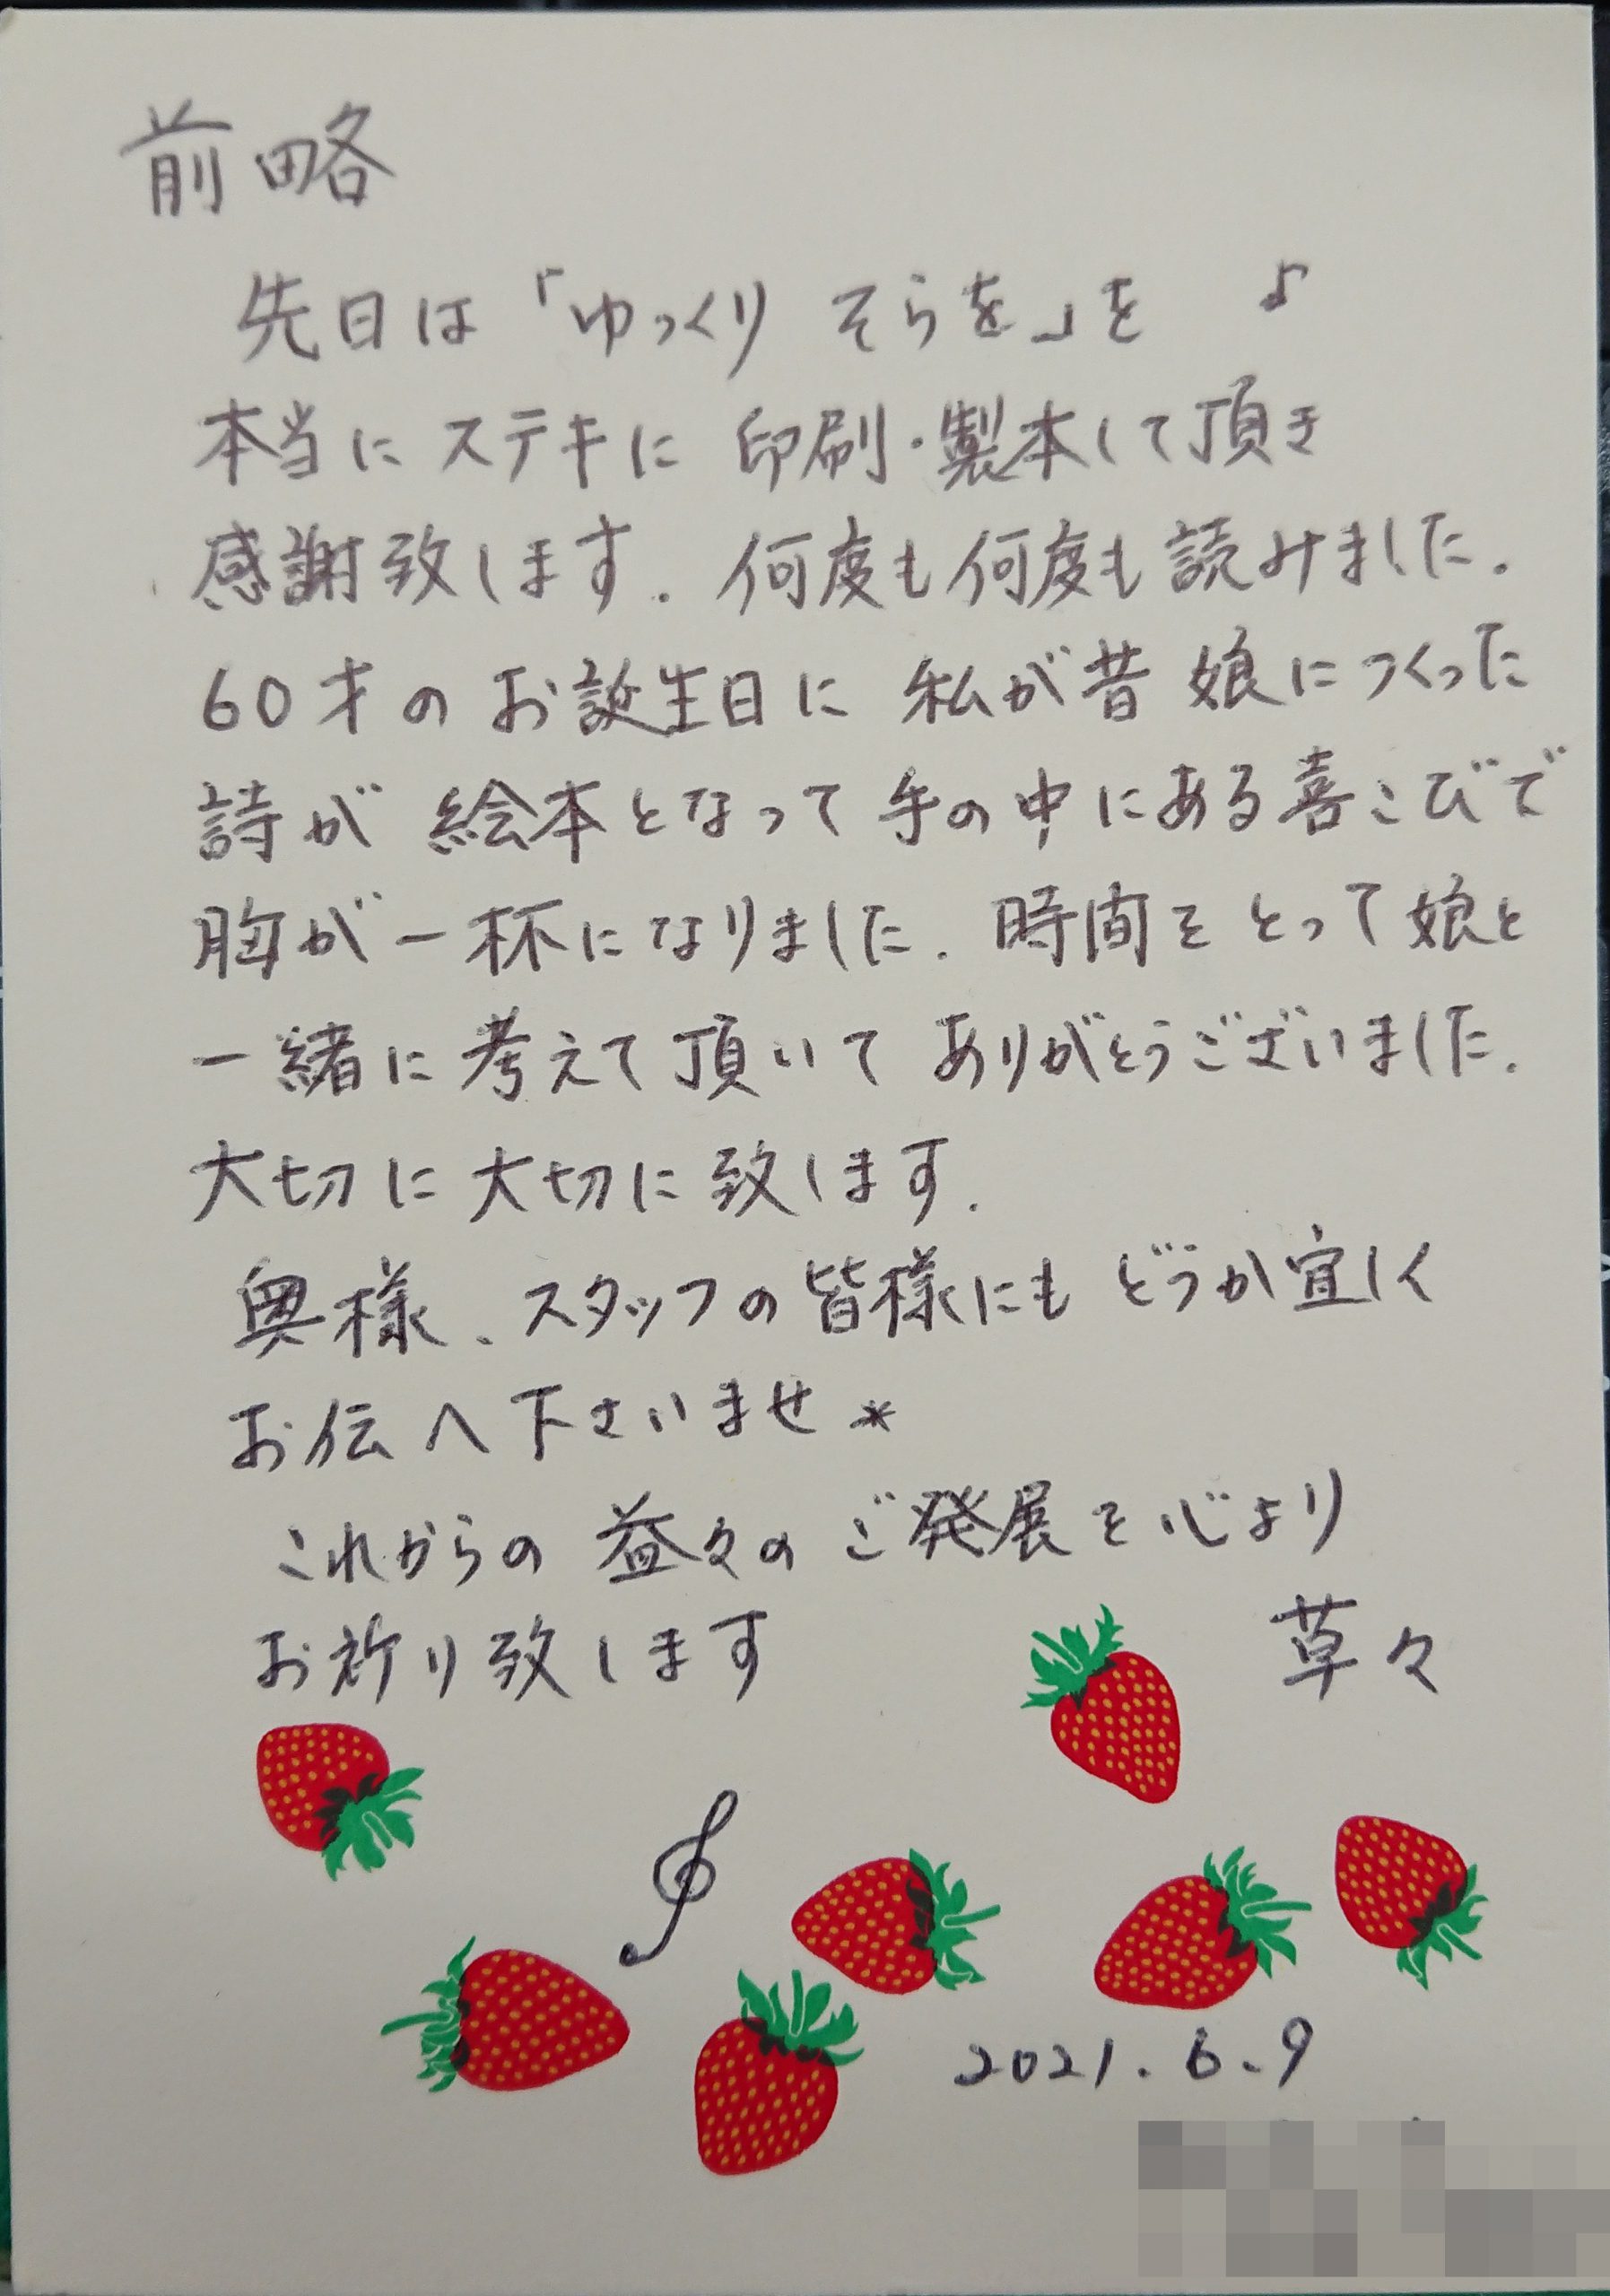 前略
先日は「ゆっくり そらを」を ♪
本当にステキに 印刷・製本して頂き
感謝致します. 何度も何度も読みました.
60才の お誕生日に 私が昔 娘につくった
詩が 絵本となって 手の中にある喜こびで
胸が一杯になりました. 時間を とって 娘と
一緒に 考えて 頂いて ありがとうございました.
大切に 大切に 致します.
奥様、スタッフの皆様にも どうか宜しく
お伝へ下さいませ*
これからの 益々の ご発展を 心より
お祈り致します
草々
2021.6.9